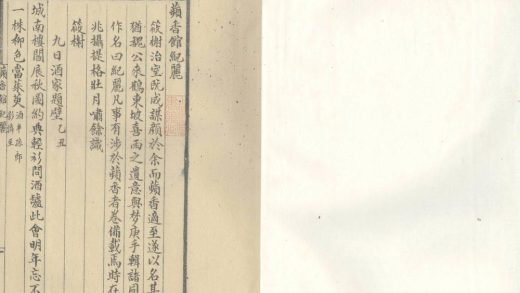 蘋香館紀麗
筱榭治室既成謀顏於余而蘋香適至遂以名其
猶魏公乘鶴東坡喜雨之遺意與夢庚手輯諸同
作名曰紀麗凡事有涉於蘋香者卷備載焉時在
兆攝提格壯月嘯餘識
筱榭
九日酒家題壁乙丑
城南樓閣展秋圖約典輕衫問酒壚此會明年忘不
一株柳色當茱萸酒半
蘋香館紀麗